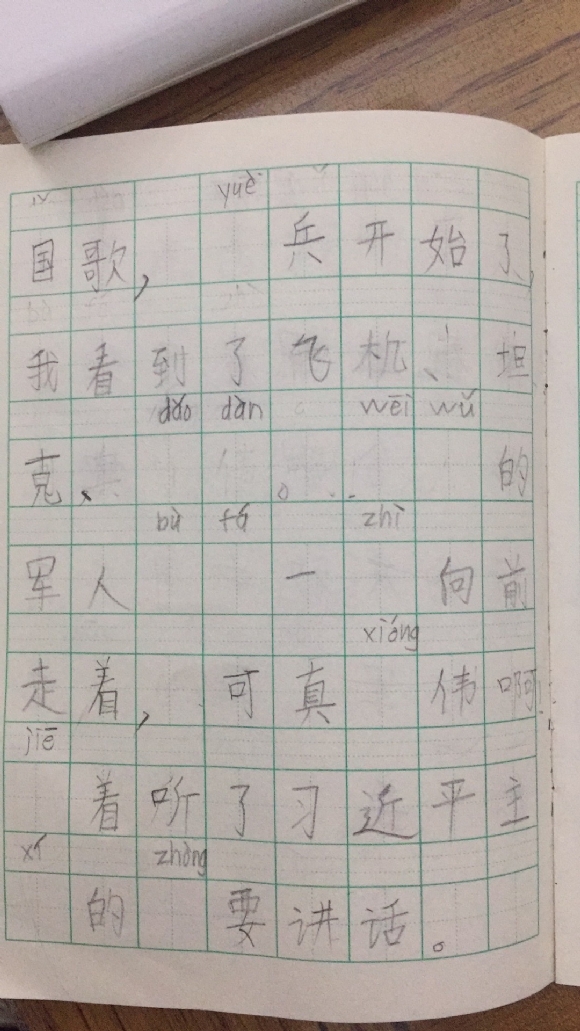 yuè
国歌，兵开始了，
我看到了飞机、坦
dǎo dàn wēi wǔ
克、。的
bù fá zhì
军人一向前
xióng
走着，可真伟啊！
jiē
着听了习近平主
xí zhòng
的要讲话。